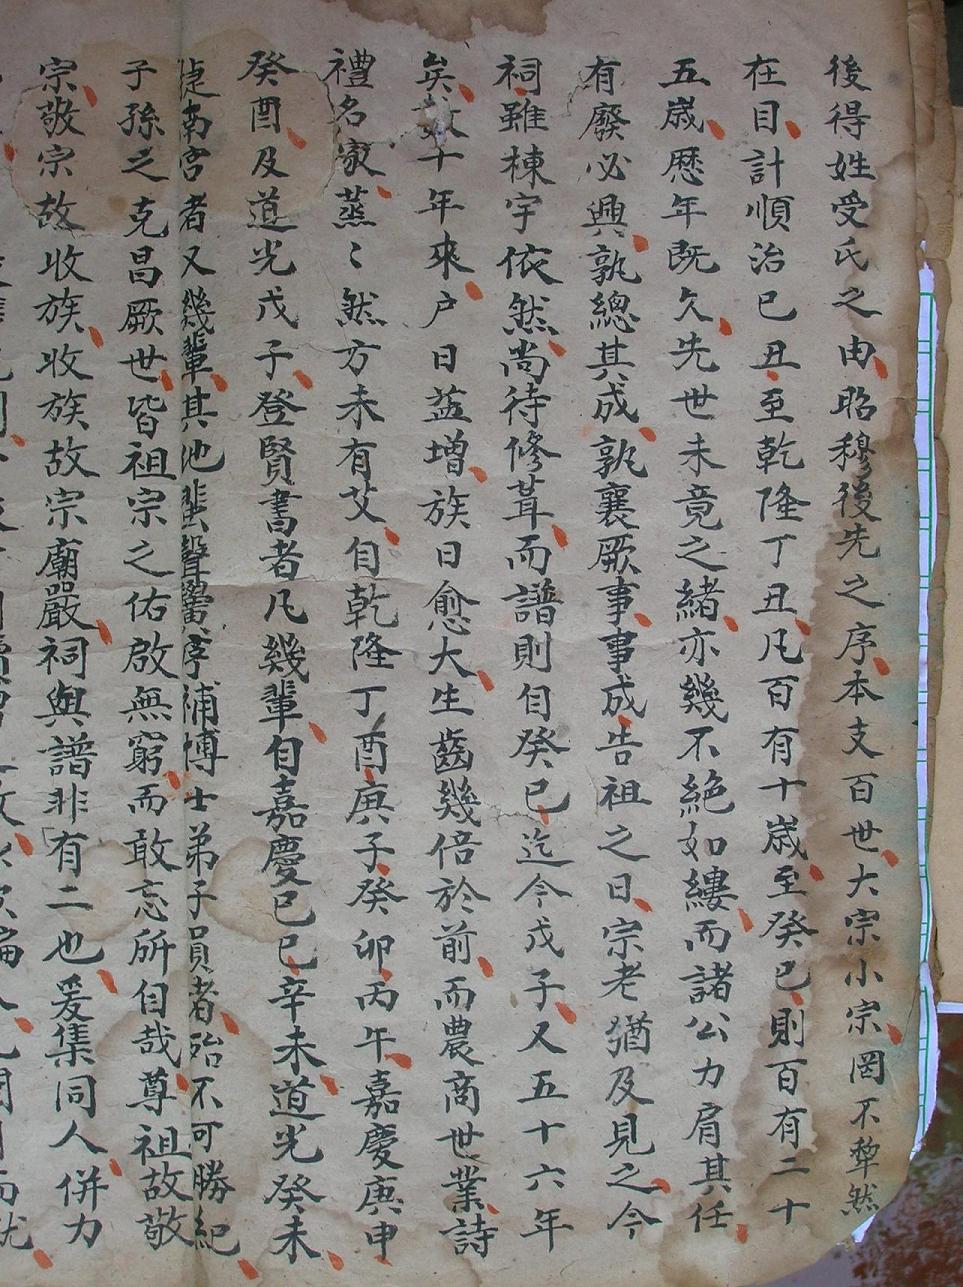 後得姓受氏之由昭穆後先之序本支百世大宗小宗罔不犂然
在目計順治已丑至乾隆丁丑凡百有十歲至癸已則百有二十
五歲歷年既久先世未竟之緒亦幾不絶如縷而諸公力肩其任
有廢必興孰總其成孰襄厥事事成告祖之日宗老猶及見之今
祠雖棟宇依然尚待修葺而譜則自癸已迄今戊子又五十六年
矣數十年來户日益增族日愈大生齒幾倍於前而農商世業詩
禮名家蒸〻然方未有艾自乾隆丁酉庚子癸卯丙午嘉慶庚申
癸酉及道光戊子登賢書者凡幾輩自嘉慶已巳辛未道光癸未
捷南宫者又幾輩其他蜚聲黌序補博士弟子員者殆不可勝紀
子孫之克昌厥世皆祖宗之佑啟無窮而敢忘所自哉尊祖故敬
宗敬宗故收族收族故宗廟嚴祠與譜非有二也爰集同人併力